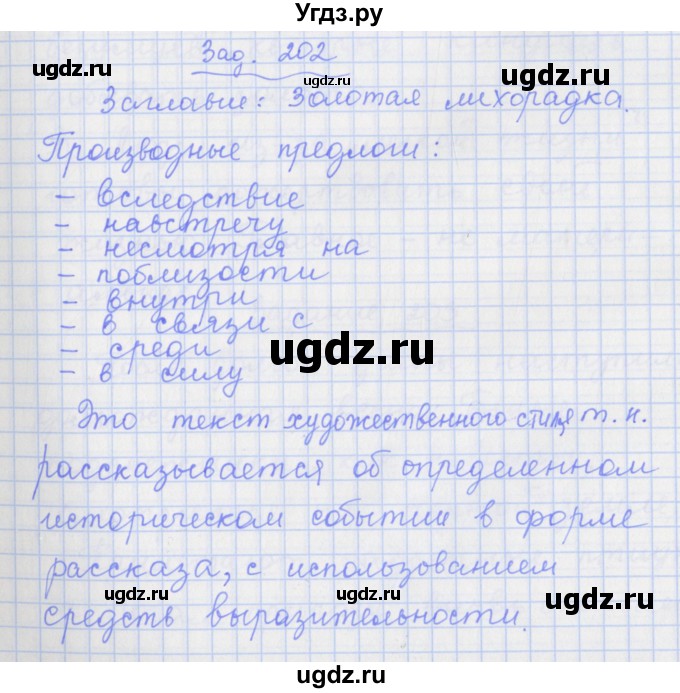 Угдз.ру
Зад. 202
ugdz.ru ugdz.ru
Заглавие: Золотая лихорадка.
ugdz.ru
Производные предлоги:
- вследствие
- навстречу
- несмотря на
- поблизости
- внутри
- в связи с
- среди
- в силу
ugdz.ru
Это текст художественного т. к.
рассказывается об определенном
историческом событии в форме
рассказа, с использованием
ugdz.ru ugdz.ru ugdz.ru
средств выразительности.
ugdz.ru
ugdz.ru